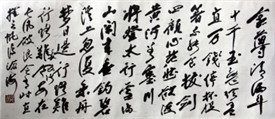 金樽清酒斗
十千玉盘珍羞
直万钱停杯投
箸不能食拔剑
四顾心茫然欲渡
黄河冰塞川
将登太行雪满
山闲来垂钓碧
溪上忽复乘舟
梦日边行路难
行路难多歧路今安在
长风破浪会有时直
挂云帆济沧海